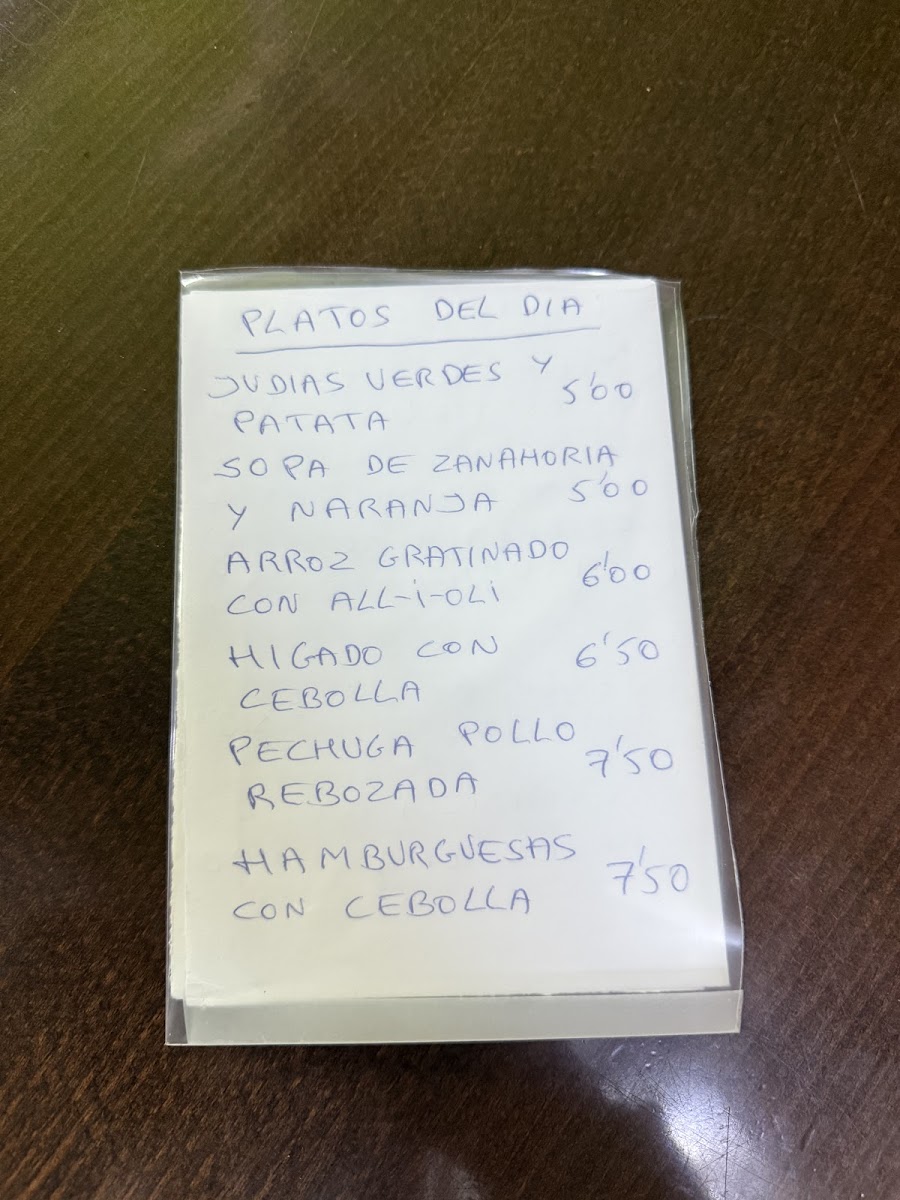 PLATOS DEL DIA
JUDIAS VERDES Y
PATATA 5'00
SOPA DE ZANAHORIA
Y NARANJA 5'00
ARROZ GRATINADO
CON ALL-i-OLi 6'00
HIGADO CON 6'50
CEBOLLA
PECHUGA POLLO
REBOZADA 7'50
HAMBURGUESAS
CON CEBOLLA 7'50